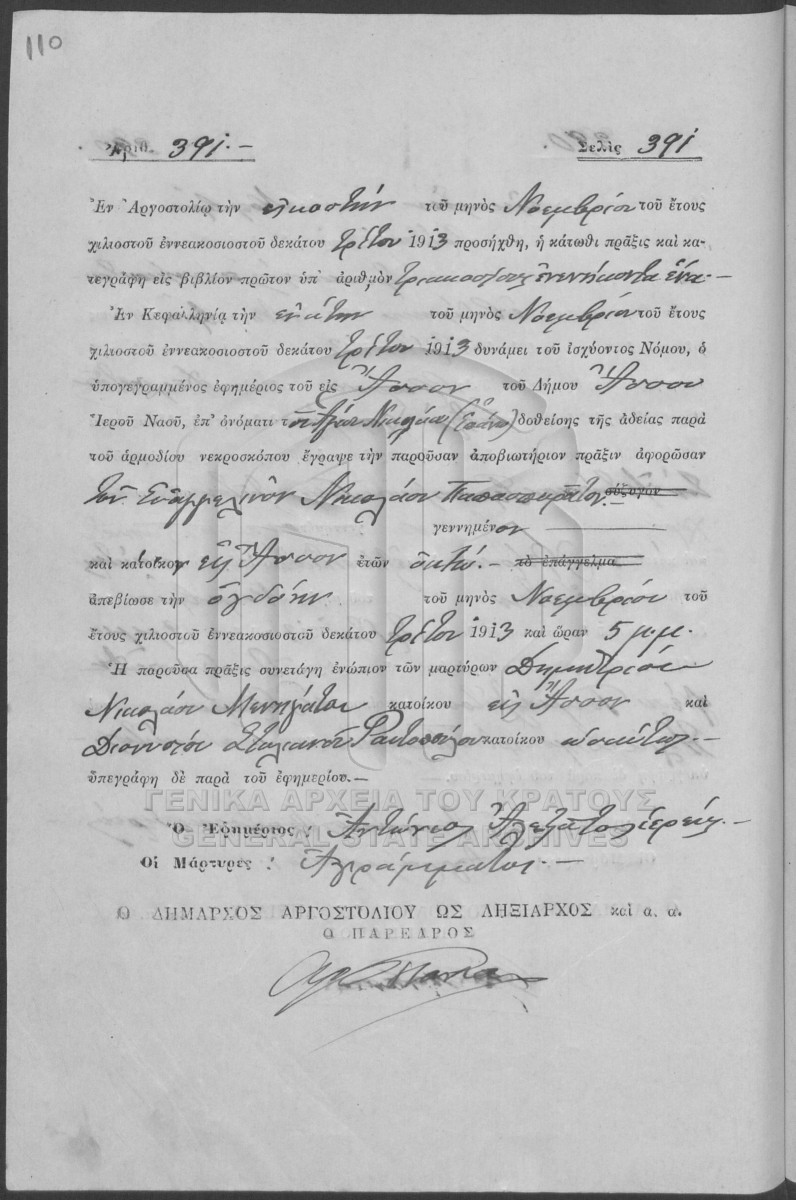 110
Ἀριθ. 391.—
Σελὶς 391
Ἐν Ἀργοστολίῳ τὴν εἰκοστὴν τοῦ μηνὸς Νοεμβρίου τοῦ ἔτους
χιλιοστοῦ ἐννεακοσιοστοῦ δεκάτου τρίτου 1913 προσήχθη, ἡ κάτωθι πρᾶξις καὶ κα-
τεγράφη εἰς βιβλίον πρῶτον ὑπ' ἀριθμὸν τριακοσιοστὸν ἐνενήκοντα ἕνα.—
Ἐν Κεφαλληνίᾳ τὴν ἐνάτην τοῦ μηνὸς Νοεμβρίου τοῦ ἔτους
χιλιοστοῦ ἐννεακοσιοστοῦ δεκάτου τρίτου 1913 δυνάμει τοῦ ἰσχύοντος Νόμου, ὁ
ὑπογεγραμμένος ἐφημέριος τοῦ εἰς Ἄσσον τοῦ Δήμου Ἄσσου
Ἱεροῦ Ναοῦ, ἐπ' ὀνόματι τοῦ Ἁγίου Νικολάου δοθείσης τῆς ἀδείας παρὰ
τοῦ ἁρμοδίου νεκροσκόπου ἔγραψε τὴν παροῦσαν ἀποβιωτήριον πρᾶξιν ἀφορῶσαν
τὸν Εὐαγγελινὸν Νικολάου Παπασπυράτου.— σύζυγον
γεννημένον
καὶ κάτοικον εἰς Ἄσσον ἐτῶν ὀκτώ.— τὸ ἐπάγγελμα
ἀπεβίωσε τὴν ὀγδόην τοῦ μηνὸς Νοεμβρίου τοῦ
ἔτους χιλιοστοῦ ἐννεακοσιοστοῦ δεκάτου τρίτου 1913 καὶ ὥραν 5 μ.μ.
Ἡ παροῦσα πρᾶξις συνετάγη ἐνώπιον τῶν μαρτύρων Δημητρίου
Νικολάου Μενηγάτου κατοίκου εἰς Ἄσσον καὶ
Διονυσίου Στυλιανοῦ Ραυτοπούλου κατοίκου ὡσαύτως.—
ὑπεγράφη δὲ παρὰ τοῦ ἐφημερίου.—
ΓΕΝΙΚΑ ΑΡΧΕΙΑ ΤΟΥ ΚΡΑΤΟΥΣ
Ὁ Ἐφημέριος: Ἀντώνιος Ἀλεξᾶτος ἱερεύς.—
GENERAL STATE ARCHIVES
Οἱ Μάρτυρες: Ἀγράμματοι.—
Ο ΔΗΜΑΡΧΟΣ ΑΡΓΟΣΤΟΛΙΟΥ ΩΣ ΛΗΞΙΑΡΧΟΣ καὶ α. α.
Ο ΠΑΡΕΔΡΟΣ